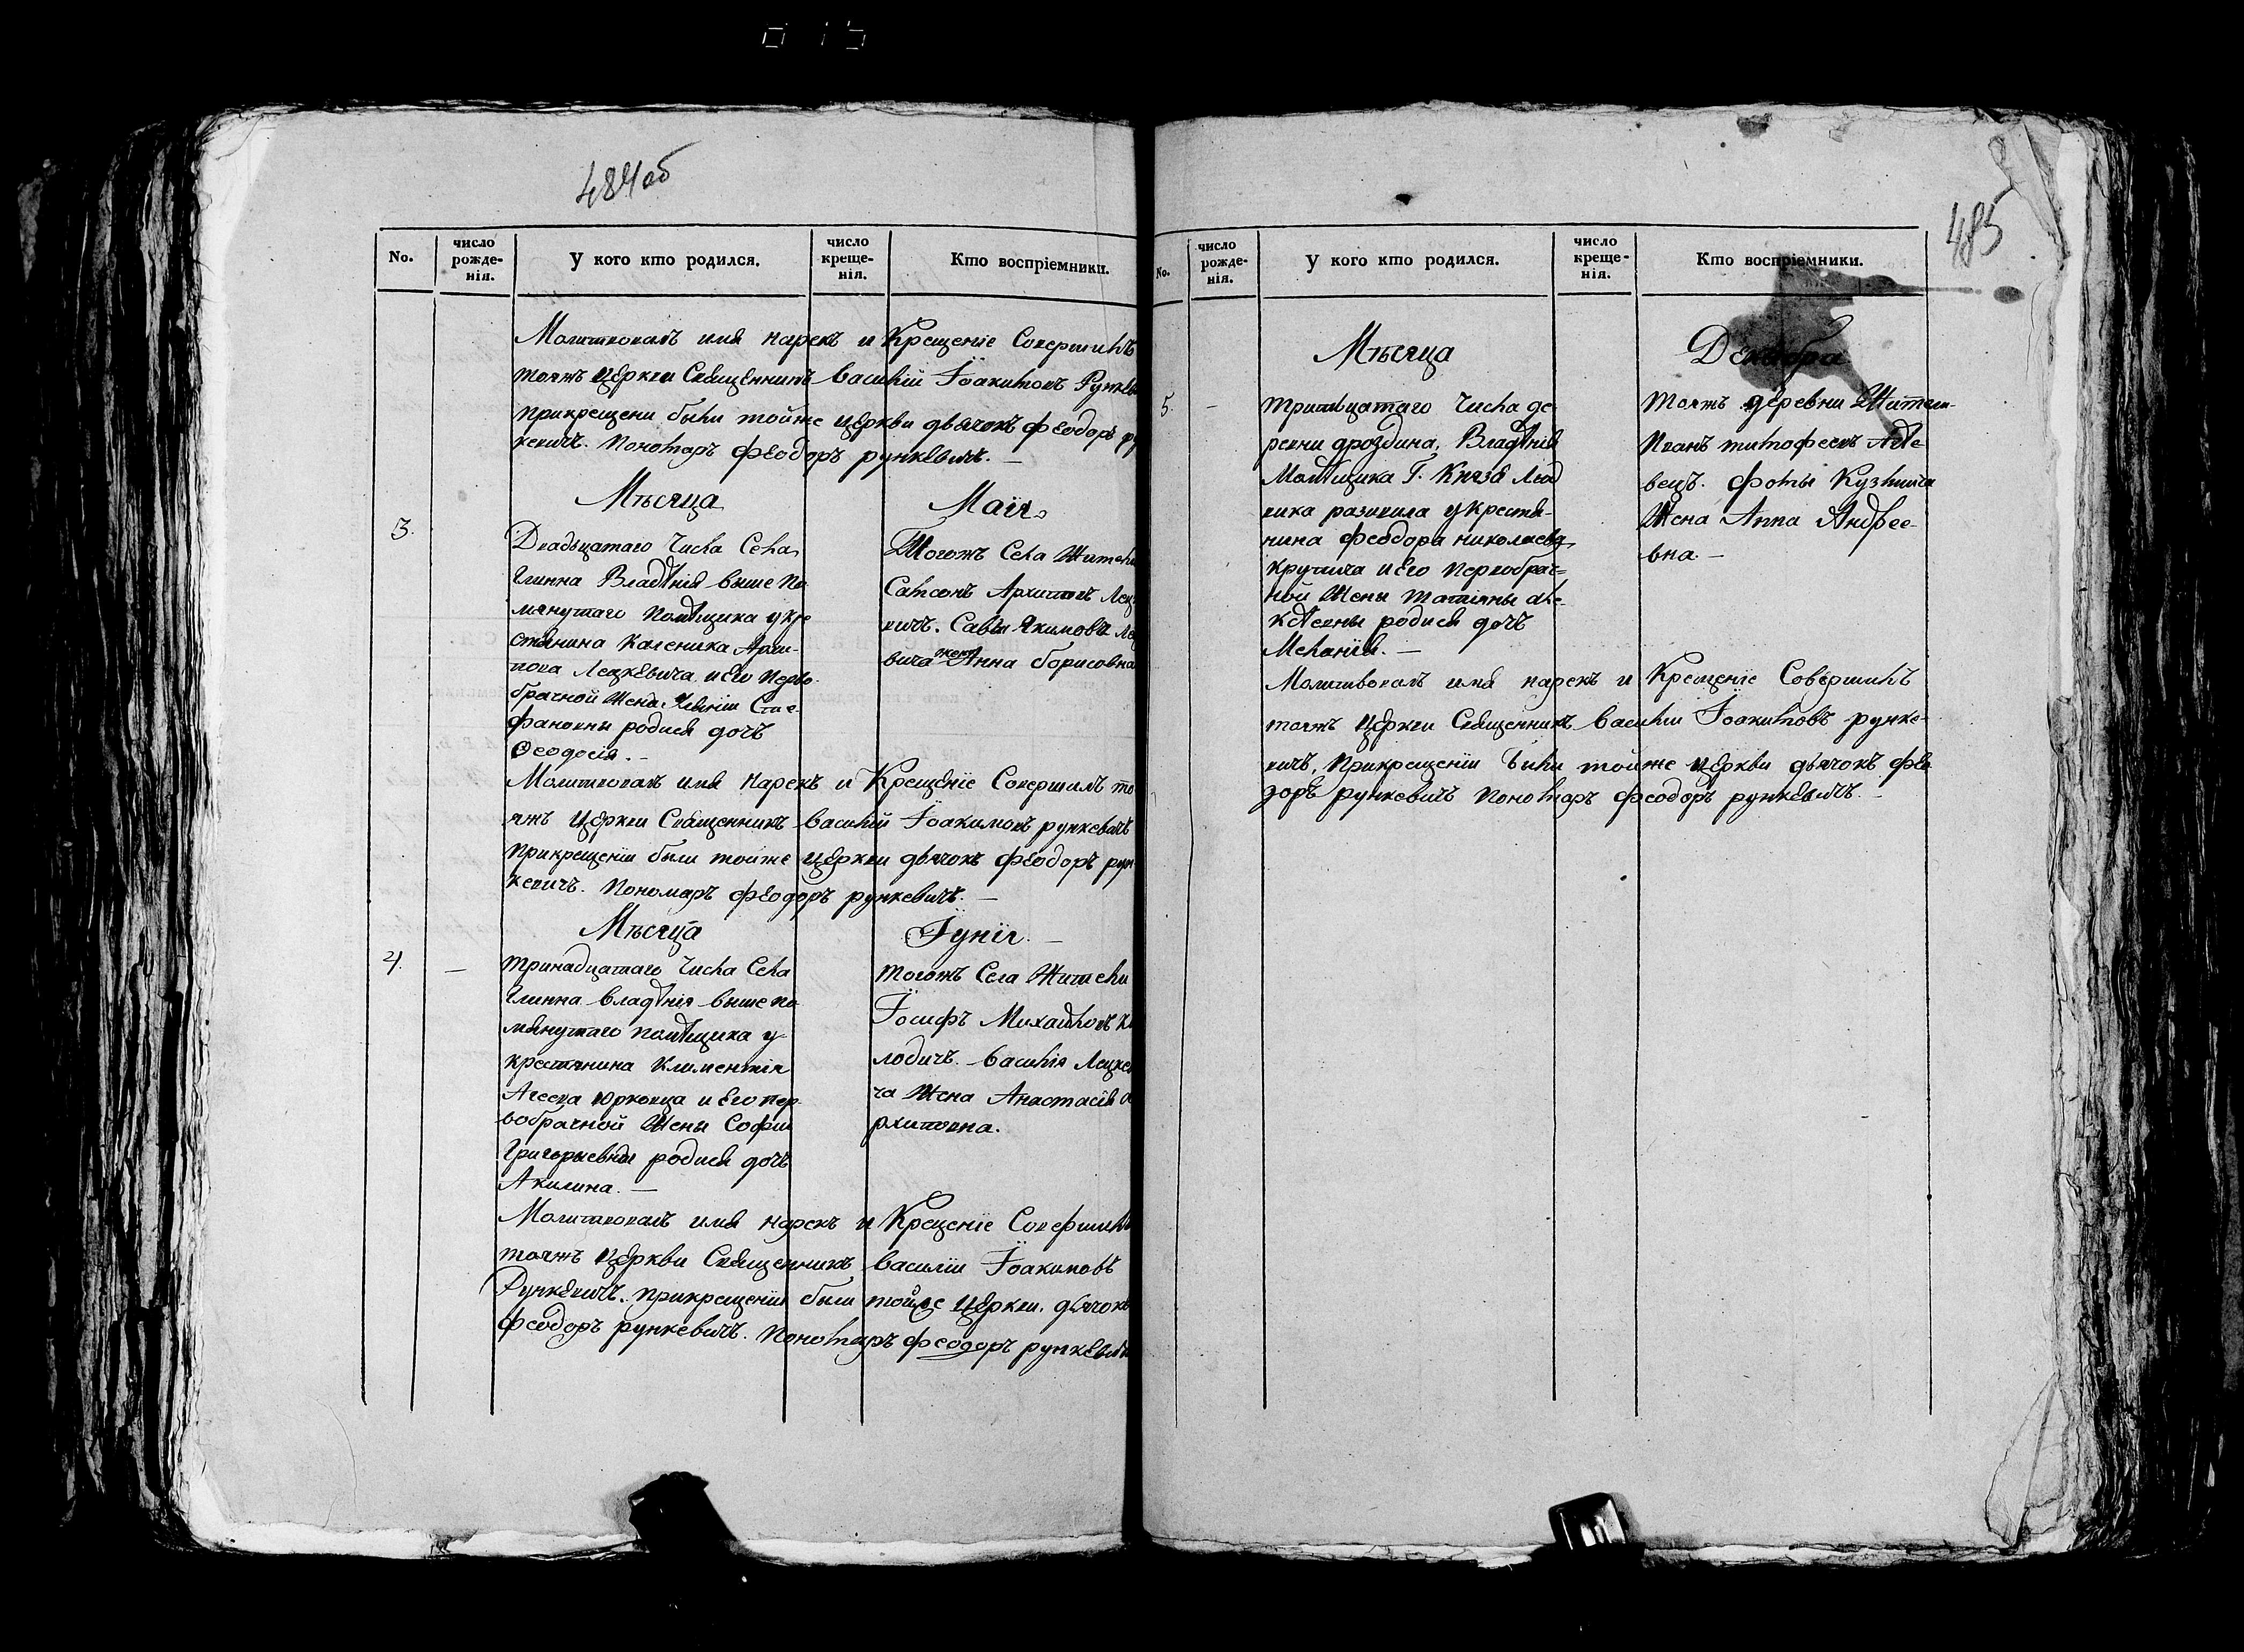 484об
No.
число рожде-нія.
У кого кто родился.
число креще-нія.
Кто воспріемники.
Молитвовалъ имя нарекъ и Крещеніе Совершилъ
тояжъ церкви Священникъ Василій Іоакимовъ Рункев
прикрещени были тойже церкви дьячокъ Феодоръ ру
кевичъ. Пономаръ Феодоръ рункевичъ. —
Мѣсяца Маія
3.
Двадьцатаго Числа Села
Глинна Владѣнія выше по
мянутаго Помѣщика укре
стянина Каленика Архи-
пова Лецкевича и Его перво-
брачной Жена Стe-
фановны родися дочъ
Ѳеодосія. —
Тогожъ Села Жители
Самсонъ Архиповъ Лец
вичъ. Савы Якимова Ле
вича жена Анна борисовна
Молитвовалъ имя нарекъ и Крещеніе Совершилъ то
яжъ Церкви Священникъ Василій Іоакимовъ рункевичъ
Прикрещеніи были тойже церкви дьячокъ Феодоръ рун
кевичъ. Пономаръ Феодоръ рункевичъ. —
Мѣсяца Іунія. —
4. —
Тринадцатаго Числа Села
Глинна Владѣнія выше по
мянутаго помѣщика у
крестянина Климентія
Агеева Юрковца и Его пер
вобрачной Жены Софии
Григорьевны родися дочъ
Акилина. —
тогожъ Села Жители
Іосифъ Михайловъ К
лодичъ. Василія Лецке
ча Жена Анастасія А
рхиповна.
Молитвовалъ имя нарекъ и Крещеніе Совершилъ
тояжъ Церкви Священникъ Василіи Іоакимовъ
Рункевичъ. прикрещеніи были тойже Церкви. дьячокъ
Феодоръ рункевичъ. Пономаръ Феодоръ рункевичъ
485
No.
число рожде-нія.
У кого кто родился.
число креще-нія.
Кто воспріемники.
Мѣсяца Декабра
5. —
Тритьцатаго Числа де
ревни дроздина, Владѣнія
Помѣщика Г. Князя Люд
вика разивила укрестя-
нина Феодора николаева
кручича и Его Первобрач-
ной Жены Татіяны але-
ксѣевны родися дочъ
Меланія. —
Тояжъ деревни Жители-
Иванъ тимофеевъ Авде-
вецъ. Фомы Кузмича
Жена Анна Андрее-
вна. —
Молитвовалъ имя нарекъ и Крещеніе Совершилъ
тояжъ Церкви Священникъ Василіи Іоакимовъ рунке-
вичъ, Прикрещеніи были тойже церкви дьячокъ фео
доръ рункевичъ Пономаръ Феодоръ рункевичъ. —